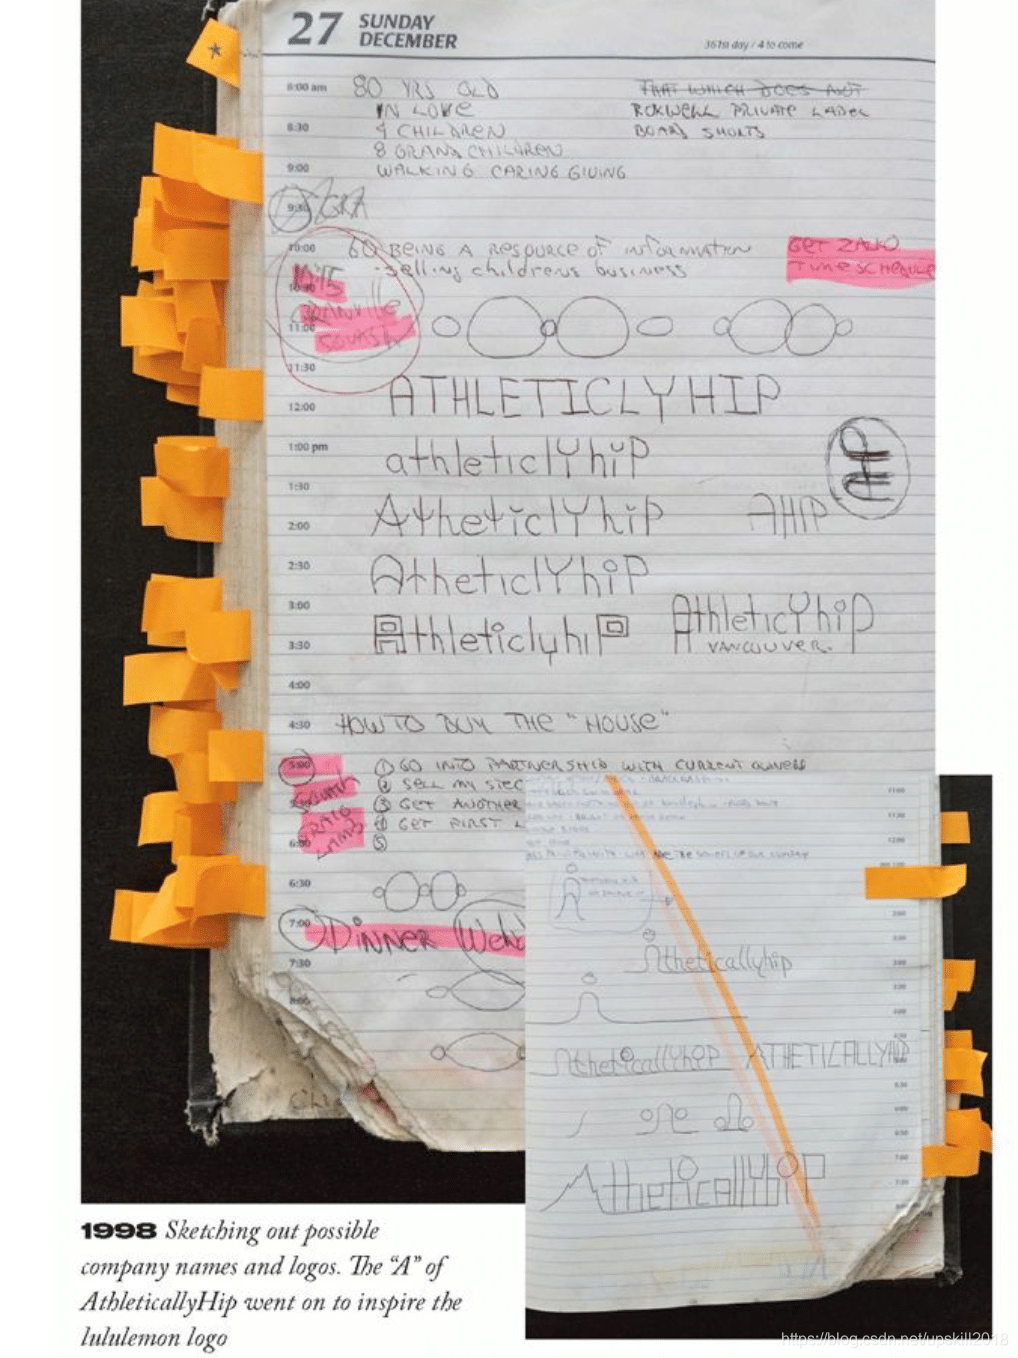 27 SUNDAY
DECEMBER
361st day / 4 to come
8:00 am
80 YRS OLD
IN LOVE
4 CHILDREN
8 GRANDCHILDREN
WALKING CARING GIVING
THAT WHICH DOES NOT
ROKWELL PRIVATE LABEL
BOARD SHORTS
8:30
9:00
9:30
10:00
60 BEING A RESOURCE OF INFORMATION
- selling childrens business
GET
TIME SCHEDULE
10:30
GRANVILLE
11:00
SQUASH
11:30
ATHLETICLYHIP
12:00
1:00 pm
athleticlYhiP
1:30
AtheticlYhiP
AHIP
2:00
2:30
AtheticlYhiP
3:00
AthleticYhiP
VANCOUVER.
AthleticlyhiP
3:30
4:00
4:30
HOW TO BUY THE "HOUSE"
5:00
① GO INTO PARTNERSHIP WITH CURRENT OWNERS
② SELL MY
③ GET ANOTHER
④ GET FIRST
⑤
SQUASH
CRAIG
LAMB
6:30
7:00
DINNER
7:30
8:00
Athetically hip
AtheticallyhiP ATHETICALLYHIP
AtheticallYhiP
1998 Sketching out possible
company names and logos. The “A” of
AthleticallyHip went on to inspire the
lululemon logo
https://blog.csdn.net/upskill2018